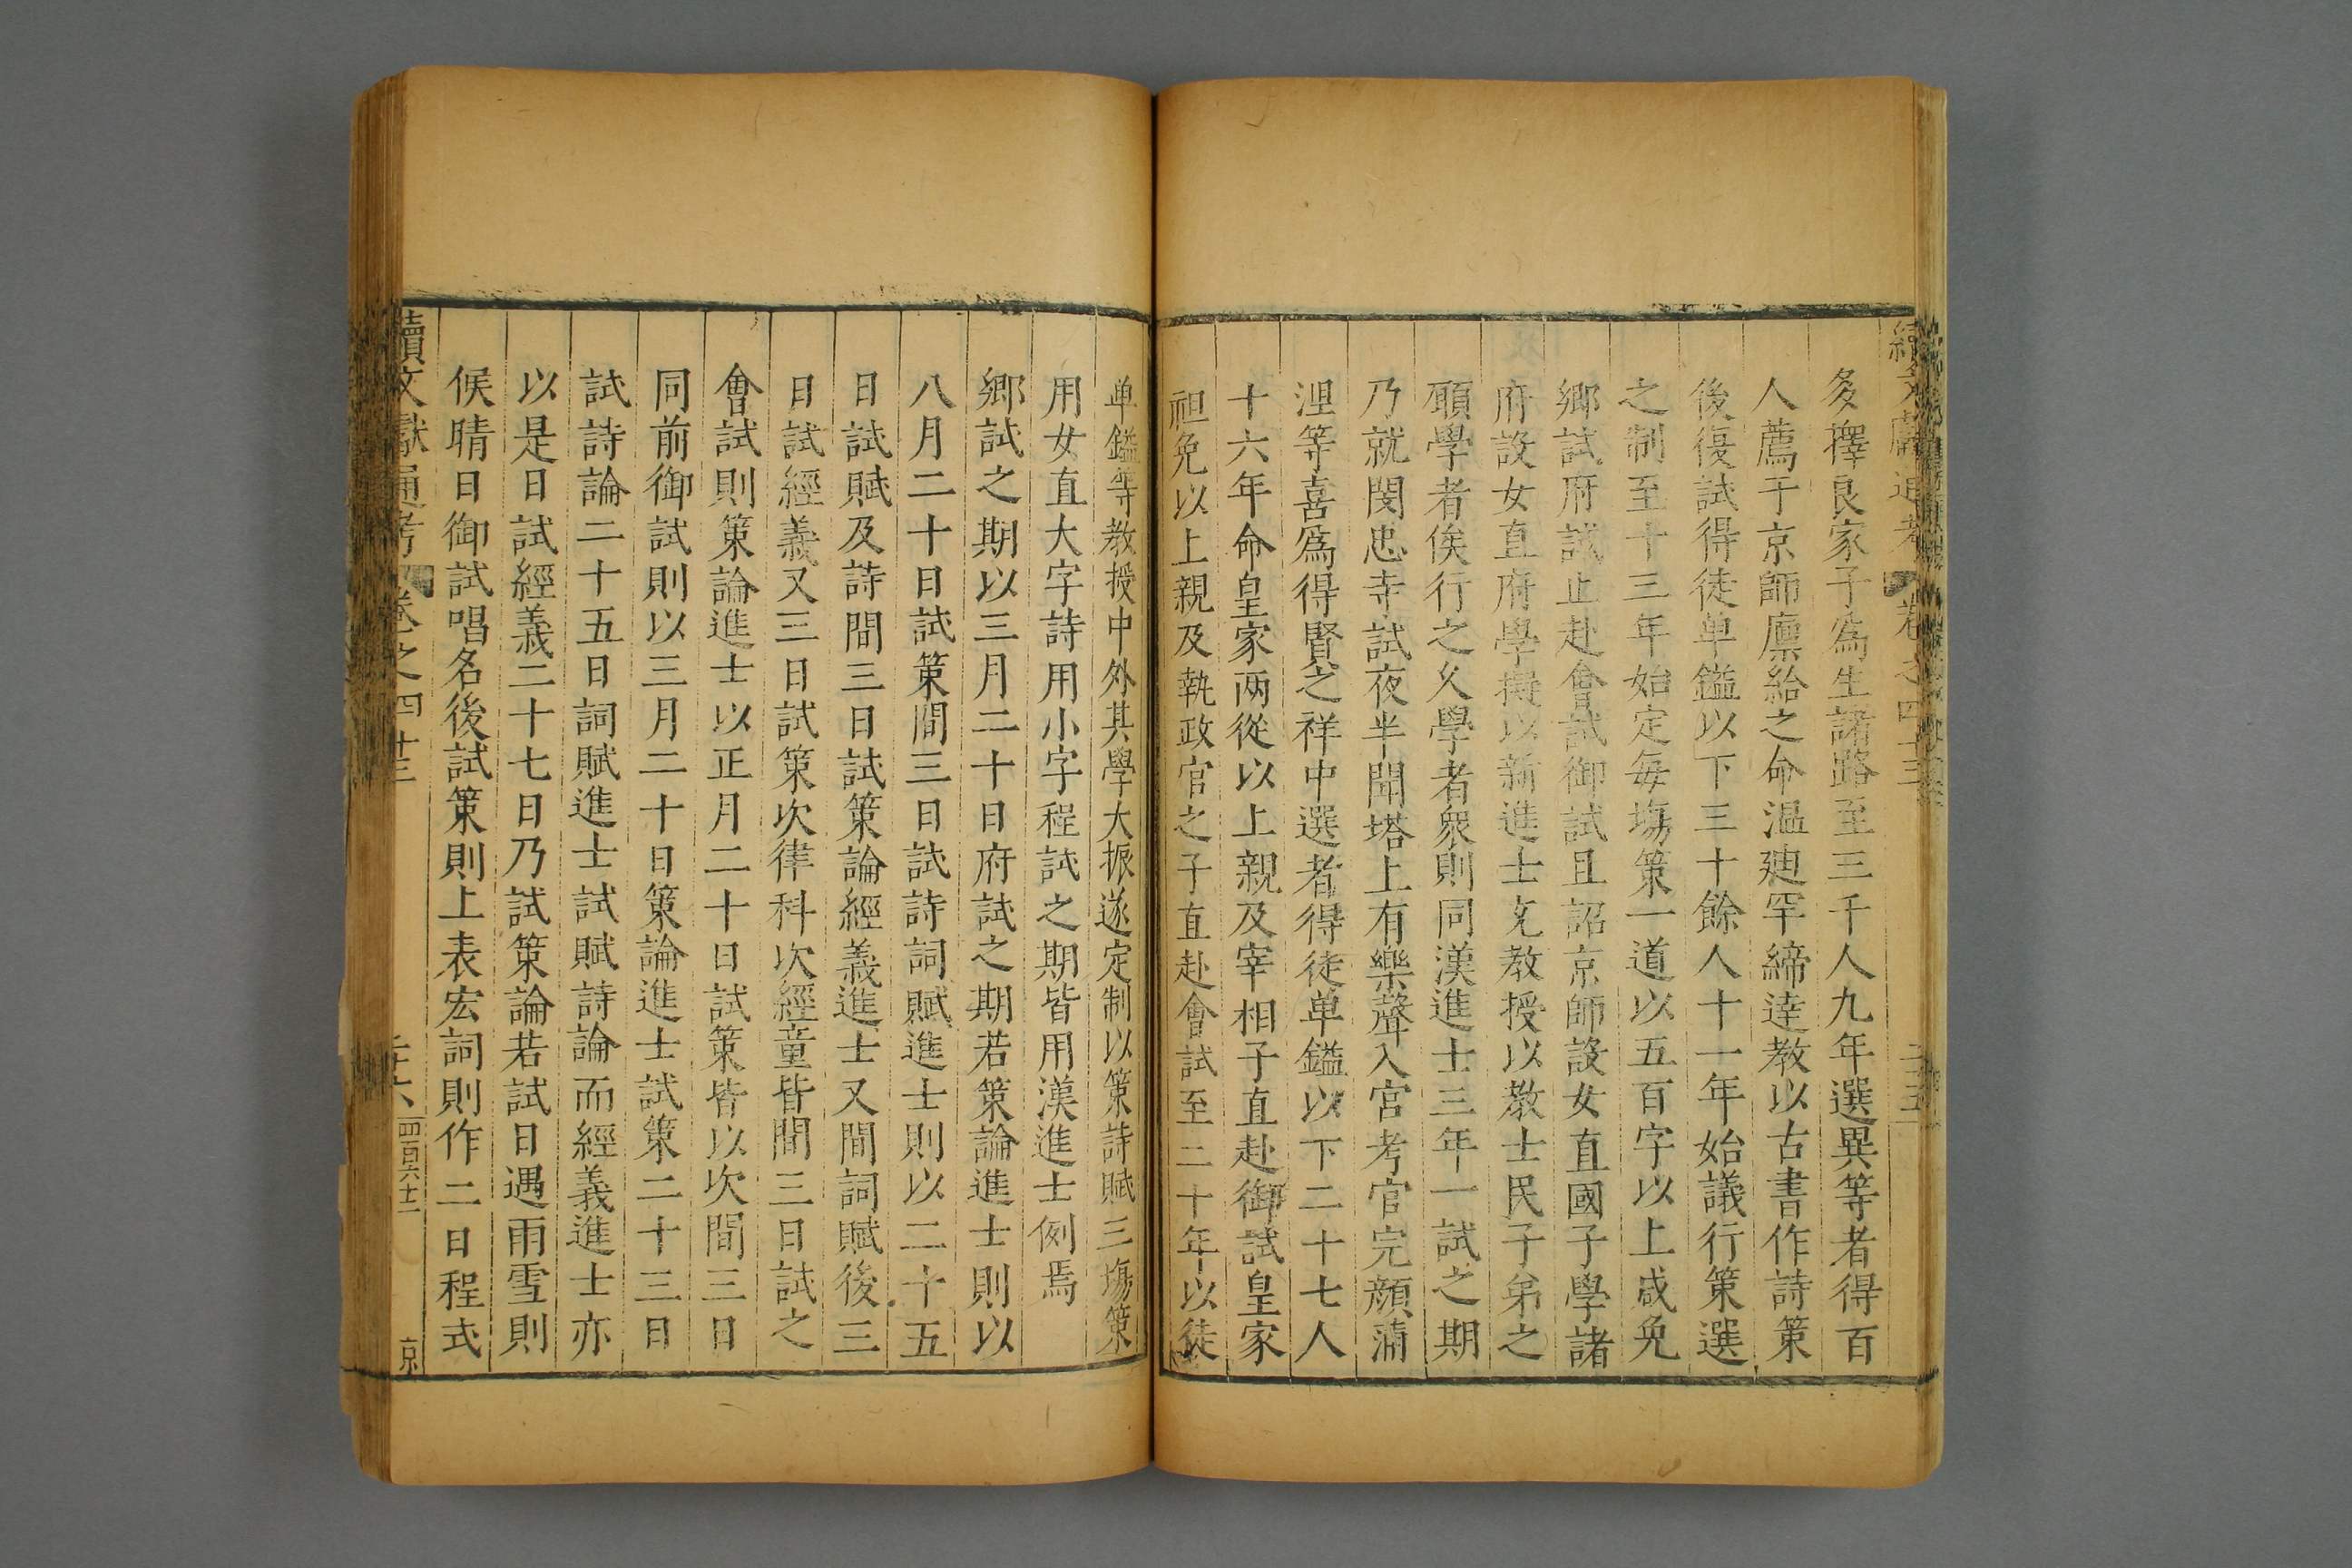 續文獻通考 卷之四十三 二十五
多擇良家子爲生諸路至三千人九年選異等者得百
人薦于京師廪給之命温廸罕締達教以古書作詩策
後復試得徒单鎰以下三十餘人十一年始議行策選
之制至十三年始定每塲策一道以五百字以上成免
鄉試府試止赴會試御試且詔京師設女直國子學諸
府設女直府學擬以新進士充教授以教士民子弟之
願學者俟行之乆學者衆則同漢進士三年一試之期
乃就閔忠寺試夜半聞塔上有樂聲入宮考官完顏蒲
涅等喜爲得賢之祥中選者得徒单鎰以下二十七人
十六年命皇家兩從以上親及宰相子直赴御試皇家
袒免以上親及執政官之子直赴會試至二十年以徒
单鎰等教授中外其學大振遂定制以策詩賦三塲策
用女直大字詩用小字程試之期皆用漢進士例焉
鄉試之期以三月二十日府試之期若策論進士則以
八月二十日試策間三日試詩詞賦進士則以二十五
日試賦及詩間三日試策論經義進士又間詞賦後三
日試經義又三日試策次律科次經童皆間三日試之
會試則策論進士以正月二十日試策皆以次間三日
同前御試則以三月二十日策論進士試策二十三日
試詩論二十五日詞賦進士試賦詩論而經義進士亦
以是日試經義二十七日乃試策論若試日遇雨雪則
候晴日御試唱名後試策則上表宏詞則作二日程式
續文獻通考 卷之四十三 二十六 四百六十二 京